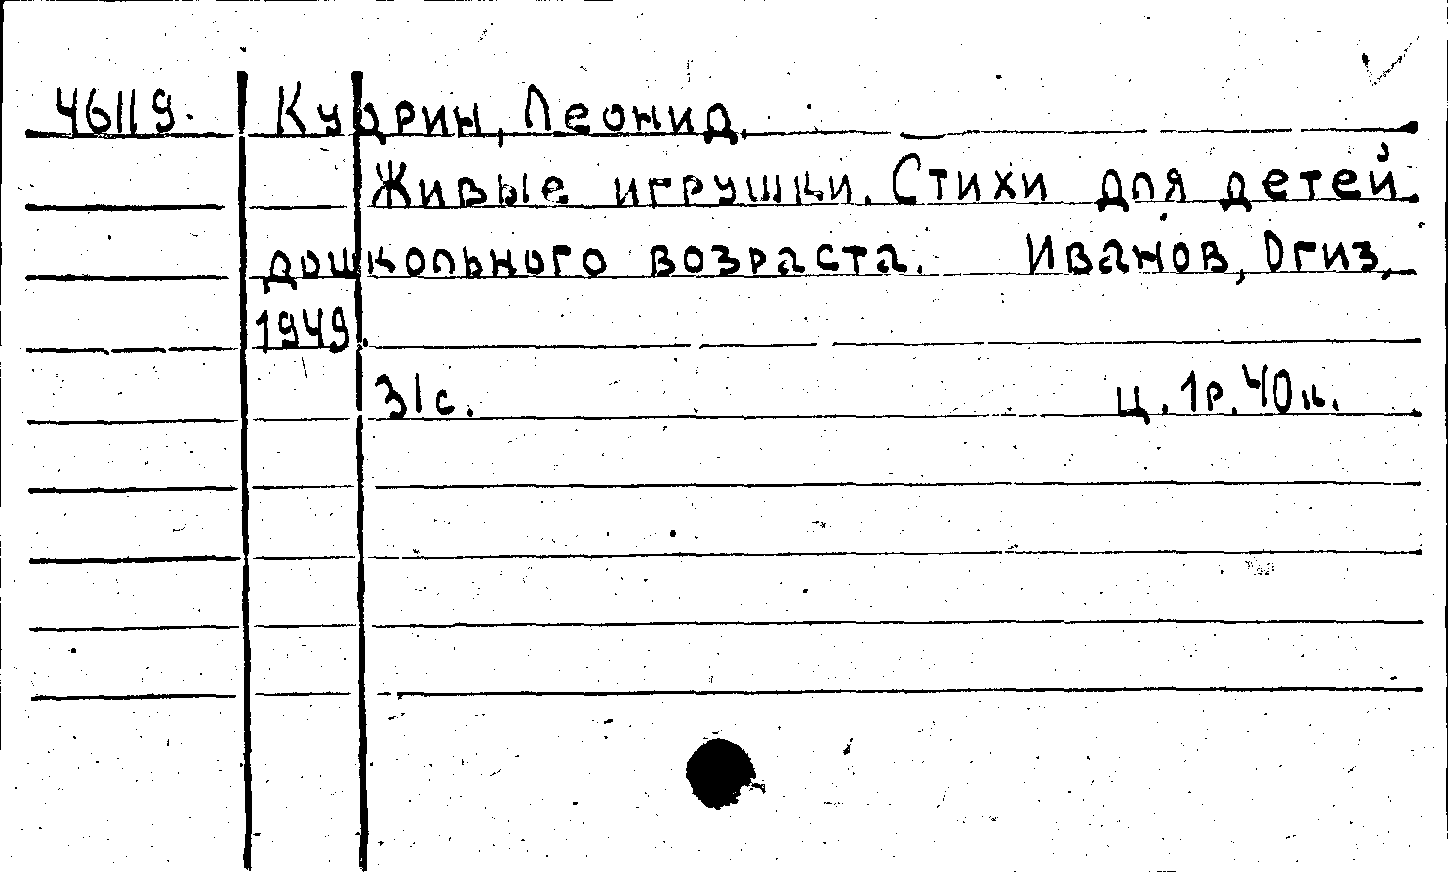 46119. Кудрин, Леонид.
Живые игрушки. Стихи для детей
дошкольного возраста. Иванов, Огиз,
1949.
31с. ц. 1р. 40к.